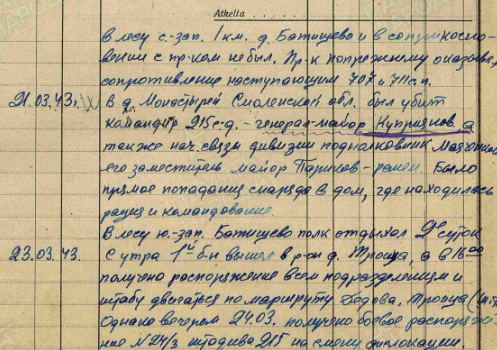 Atkelta . . . . .
В лесу с.-зап. 1 км. д. Батищево и в соприкосно-
вении с пр-ком не был. Пр-к попрежнему оказывал
сопротивление наступающим 707 и 711 с.п.
21.03.43. В д. Монастырей Смоленской обл. был убит
командир 215 с.д. - генерал-майор Куприянов, а
также нач. связи дивизии подполковник
его заместитель майор - ранен. Было
прямое попадание снаряда в дом, где находилась
рация и командование.
В лесу ю.-зап. Батищево полк отдыхал 2е суток
23.03.43. С утра 1й б-н вышел в р-он д. Троица, а в 16.00
получено распоряжение всем подразделениям и
штабу двигаться по маршруту Дедова, Троица
Однако вечером 24.03. получено боевое распоряже-
ние № 24/3 штадива 215 на смену дислокации.